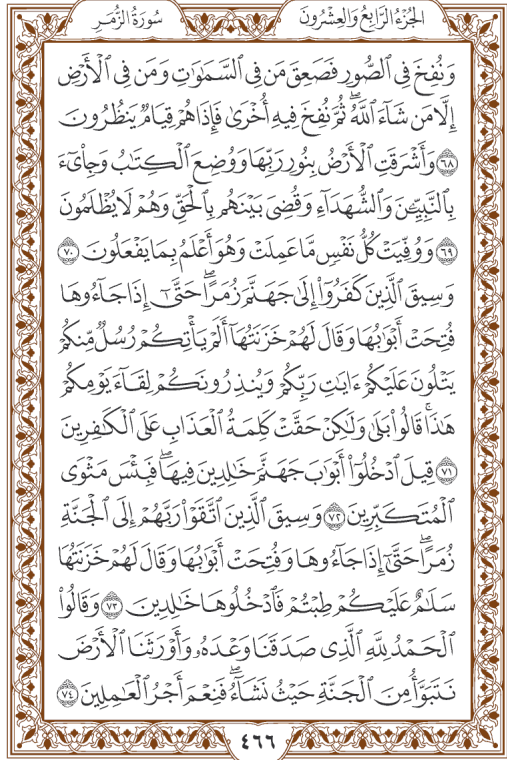 الجُزْءُ الرَّابِعُ وَالعِشْرُونَ
سُورَةُ الزُّمَرِ
وَنُفِخَ فِي ٱلصُّورِ فَصَعِقَ مَن فِي ٱلسَّمَٰوَٰتِ وَمَن فِي ٱلْأَرْضِ
إِلَّا مَن شَآءَ ٱللَّهُۖ ثُمَّ نُفِخَ فِيهِ أُخْرَىٰ فَإِذَا هُمْ قِيَامٌ يَنظُرُونَ
٦٨ وَأَشْرَقَتِ ٱلْأَرْضُ بِنُورِ رَبِّهَا وَوُضِعَ ٱلْكِتَٰبُ وَجِا۟يٓءَ
بِٱلنَّبِيِّۦنَ وَٱلشُّهَدَآءِ وَقُضِيَ بَيْنَهُم بِٱلْحَقِّ وَهُمْ لَا يُظْلَمُونَ
٦٩ وَوُفِّيَتْ كُلُّ نَفْسٍ مَّا عَمِلَتْ وَهُوَ أَعْلَمُ بِمَا يَفْعَلُونَ ٧٠
وَسِيقَ ٱلَّذِينَ كَفَرُوٓا۟ إِلَىٰ جَهَنَّمَ زُمَرًاۖ حَتَّىٰٓ إِذَا جَآءُوهَا
فُتِحَتْ أَبْوَٰبُهَا وَقَالَ لَهُمْ خَزَنَتُهَآ أَلَمْ يَأْتِكُمْ رُسُلٌ مِّنكُمْ
يَتْلُونَ عَلَيْكُمْ ءَايَٰتِ رَبِّكُمْ وَيُنذِرُونَكُمْ لِقَآءَ يَوْمِكُمْ
هَٰذَاۚ قَالُوا۟ بَلَىٰ وَلَٰكِنْ حَقَّتْ كَلِمَةُ ٱلْعَذَابِ عَلَى ٱلْكَٰفِرِينَ
٧١ قِيلَ ٱدْخُلُوٓا۟ أَبْوَٰبَ جَهَنَّمَ خَٰلِدِينَ فِيهَاۖ فَبِئْسَ مَثْوَى
ٱلْمُتَكَبِّرِينَ ٧٢ وَسِيقَ ٱلَّذِينَ ٱتَّقَوْا۟ رَبَّهُمْ إِلَى ٱلْجَنَّةِ
زُمَرًاۖ حَتَّىٰٓ إِذَا جَآءُوهَا وَفُتِحَتْ أَبْوَٰبُهَا وَقَالَ لَهُمْ خَزَنَتُهَا
سَلَٰمٌ عَلَيْكُمْ طِبْتُمْ فَٱدْخُلُوهَا خَٰلِدِينَ ٧٣ وَقَالُوا۟
ٱلْحَمْدُ لِلَّهِ ٱلَّذِي صَدَقَنَا وَعْدَهُۥ وَأَوْرَثَنَا ٱلْأَرْضَ
نَتَبَوَّأُ مِنَ ٱلْجَنَّةِ حَيْثُ نَشَآءُۖ فَنِعْمَ أَجْرُ ٱلْعَٰمِلِينَ ٧٤
٤٦٦